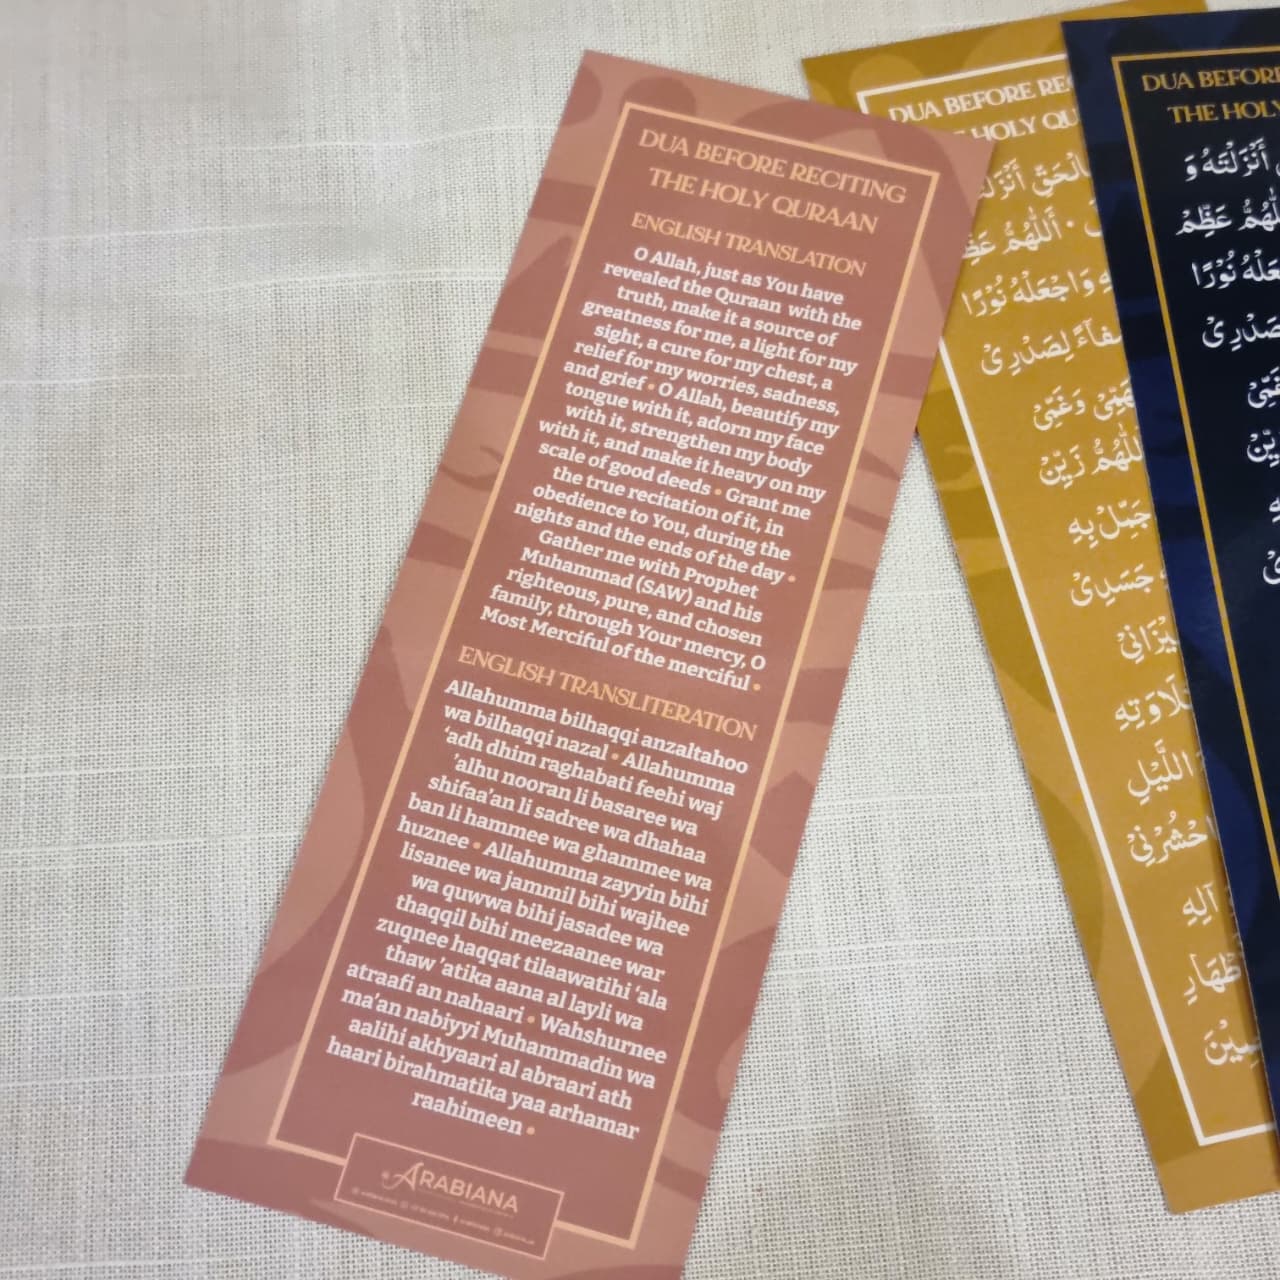 DUA BEFORE RECITING
THE HOLY QURAAN
ENGLISH TRANSLATION
O Allah, just as You have
revealed the Quraan with the
truth, make it a source of
greatness for me, a light for my
sight, a cure for my chest, a
relief for my worries, sadness,
and grief • O Allah, beautify my
tongue with it, adorn my face
with it, strengthen my body
with it, and make it heavy on my
scale of good deeds • Grant me
the true recitation of it, in
obedience to You, during the
nights and the ends of the day •
Gather me with Prophet
Muhammad (SAW) and his
righteous, pure, and chosen
family, through Your mercy, O
Most Merciful of the merciful •
ENGLISH TRANSLITERATION
Allahumma bilhaqqi anzaltahoo
wa bilhaqqi nazal • Allahumma
‘adh dhim raghabati feehi waj
’alhu nooran li basaree wa
shifaa’an li sadree wa dhahaa
ban li hammee wa ghammee wa
huznee • Allahumma zayyin bihi
lisanee wa jammil bihi wajhee
wa quwwa bihi jasadee wa
thaqqil bihi meezaanee war
zuqnee haqqat tilaawatihi ‘ala
thaw ’atika aana al layli wa
atraafi an nahaari • Wahshurnee
ma’an nabiyyi Muhammadin wa
aalihi akhyaari al abraari ath
haari birahmatika yaa arhamar
raahimeen •
ARABIANA
DUA BEFORE
HOLY
وَاجْعَلْهُ نُوْرًا
لِصَدْرِيْ
وَغَمِّيْ
زَيِّنْ
جَمِّلْ بِهِ
جَسَدِيْ
اللَّيْلِ
آلِهِ
DUA BEFORE
THE HOLY
أَنْزَلْتَهُ وَ
عَظِّمْ
نُوْرًا